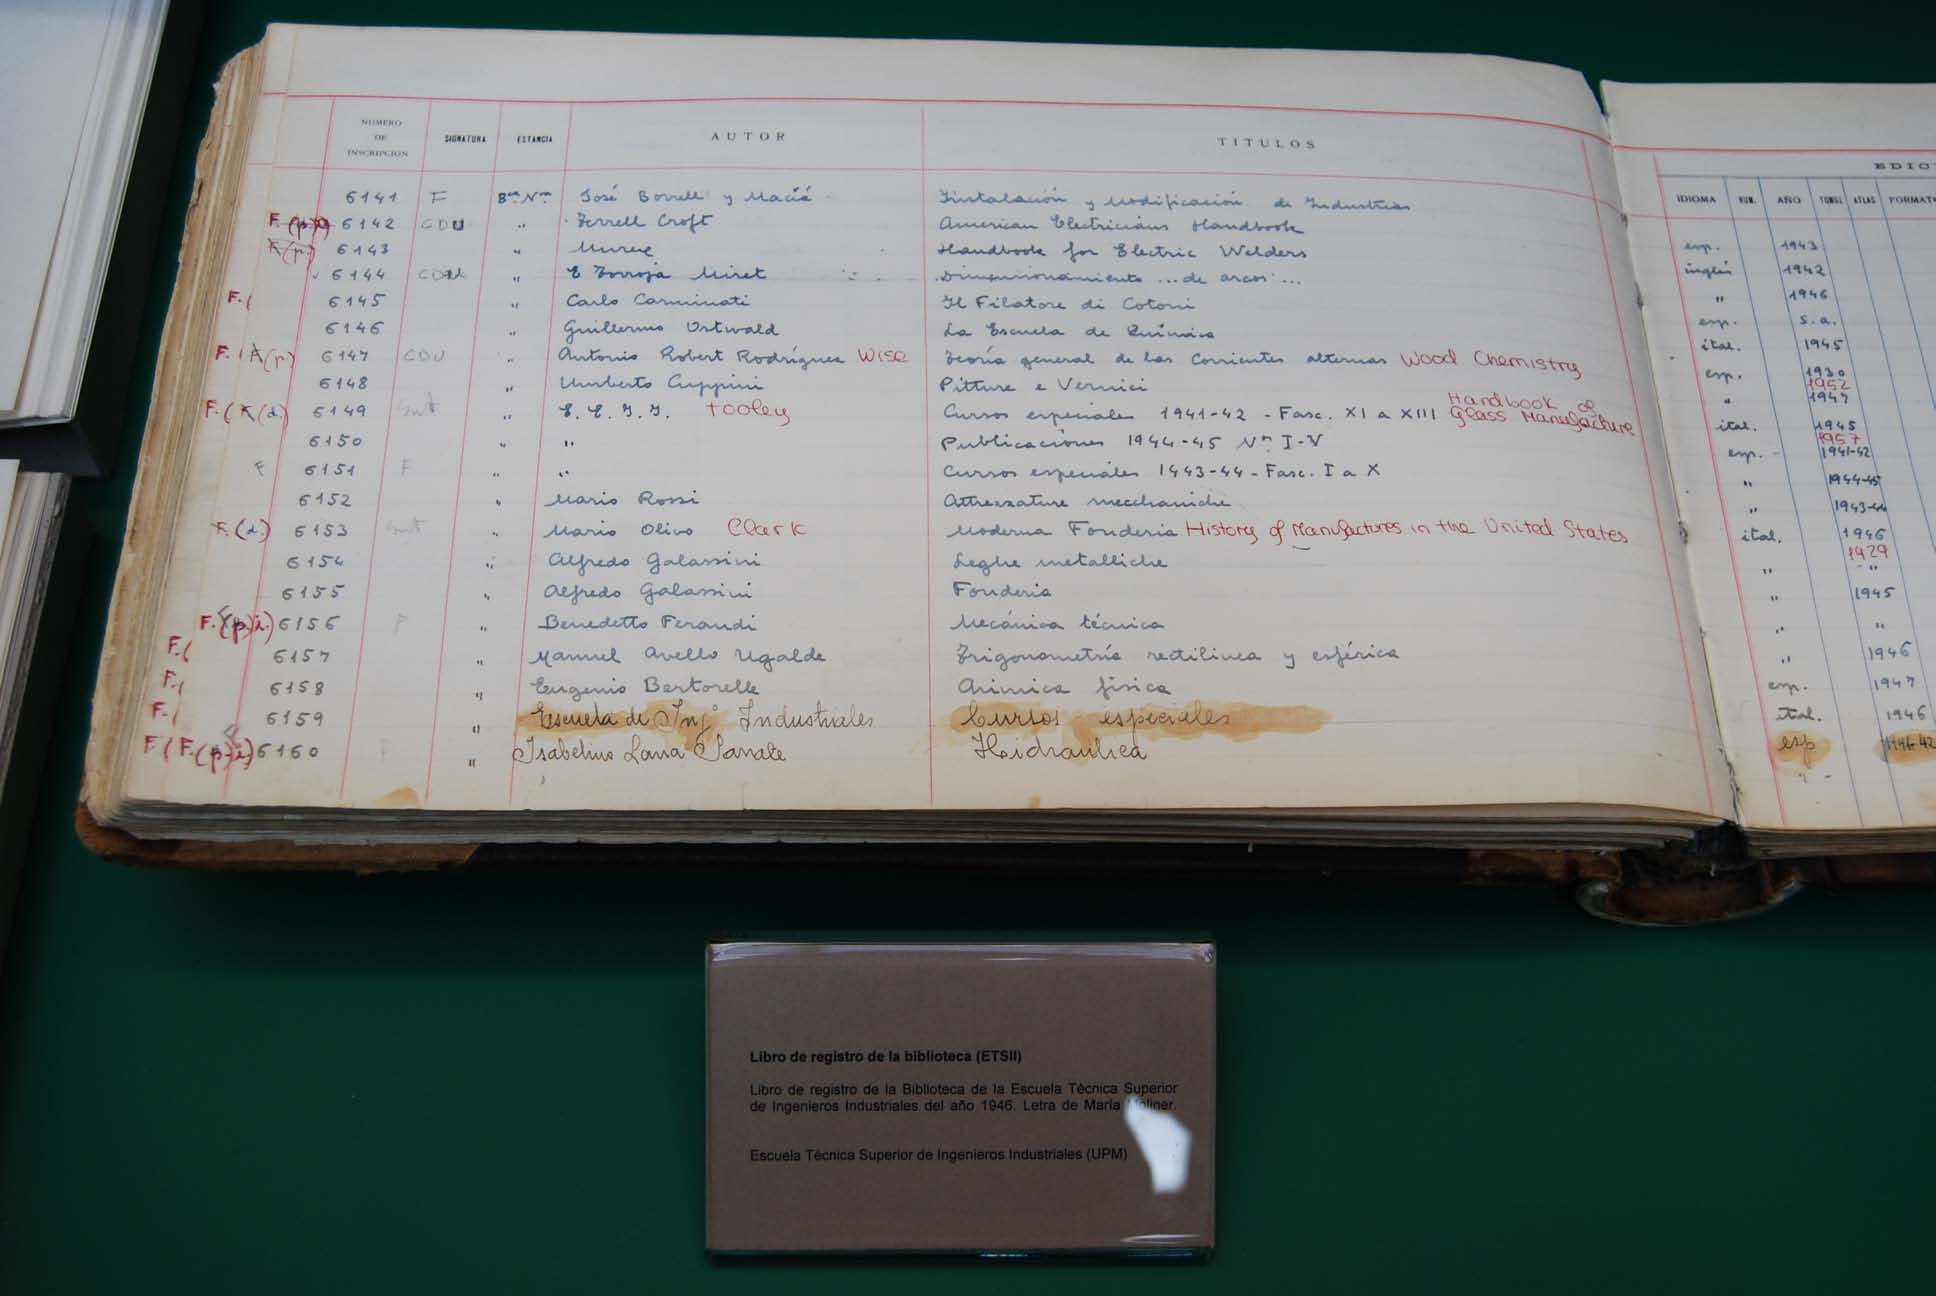 NUMERO DE INSCRIPCION SIGNATURA ESTANCIA AUTOR TITULOS
6141 F José Borrell y Maciá Instalación y Modificación de Industrias
F. 6142 CDU " Terrell Croft American Electricians Handbook
6143 " Murex Handbook for Electric Welders
6144 " E Torroja Miret Dimensionamiento ... de arcos ...
F.( 6145 " Carlo Carminati Il Filatore di Cotoni
6146 " Guillermo Ostwald La Escuela de Química
F.( 6147 CDU " Antonio Robert Rodríguez Wise Teoría general de las corrientes alternas Wood Chemistry
6148 " Umberto Cuppini Pitture e Vernici
F.( 6149 " E. E. I. I. Tooley Cursos especiales 1941-42 - Fasc. XI a XIII Handbook of Glass Manufacture
6150 " " Publicaciones 1944-45 Nº I-V
6151 F " " Cursos especiales 1943-44 - Fasc. I a X
6152 " Mario Rossi Attrezzature meccaniche
F.(d.) 6153 " Mario Olivo Clark Moderna Fonderia History of Manufactures in the United States
6154 " Alfredo Galassini Leghe metalliche
6155 " Alfredo Galassini Fonderia
F.(p.i.) 6156 " Benedetto Ferandi Mecánica técnica
F.( 6157 " Manuel Avello Ugalde Trigonometría rectilinea y esférica
F.( 6158 " Eugenio Bertorelle Chimica fisica
F.( 6159 " Escuela de Ingº Industriales Cursos especiales
F.( F.(p.i.) 6160 F " Isabelino Lana Sarrate Hidraulica
EDIC
IDIOMA NUM. AÑO TOMOS ATLAS FORMAT
esp. 1943
inglés 1942
" 1946
esp. s.a.
ital. 1945
esp. 1930
1952
" 1947
ital. 1945
1957
esp. - 1941-42
" 1944-45
" 1943-44
ital. 1946
1929
" "
" 1945
" "
" 1946
esp. 1947
ital. 1946
esp
"
Libro de registro de la biblioteca (ETSII)
Libro de registro de la Biblioteca de la Escuela Técnica Superior
de Ingenieros Industriales del año 1946. Letra de María Moliner.
Escuela Técnica Superior de Ingenieros Industriales (UPM)